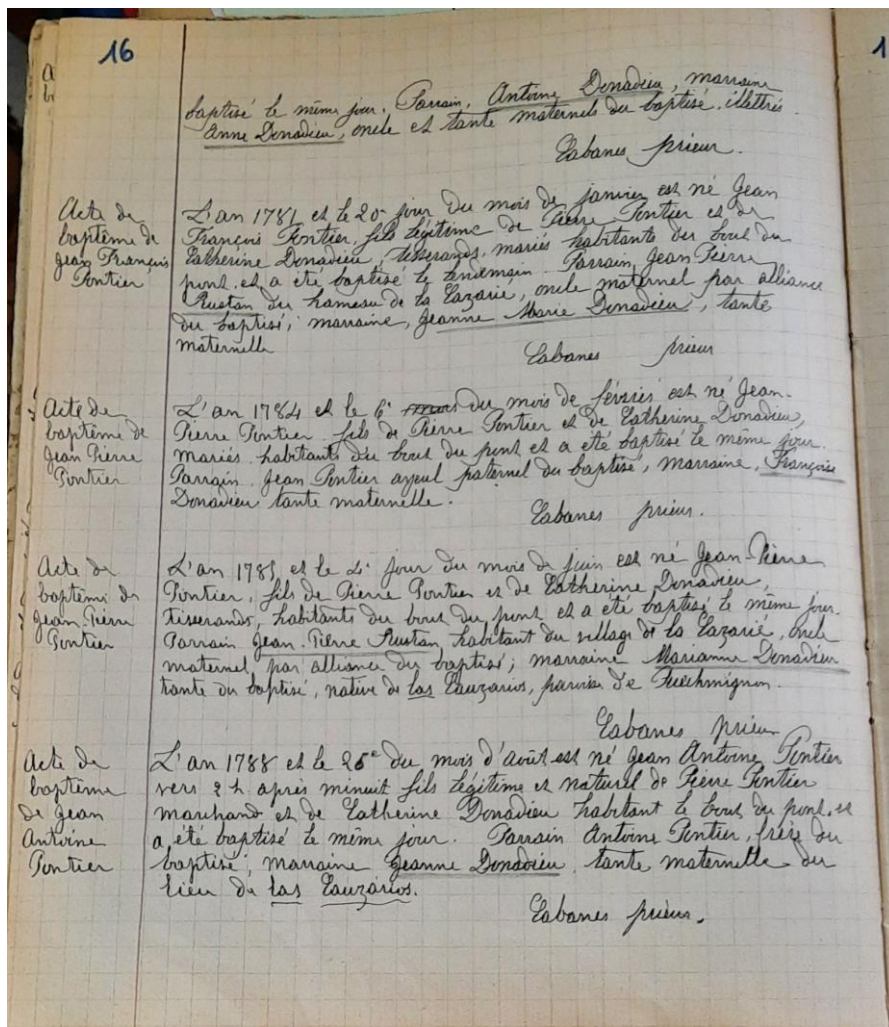 16
1
baptisé le même jour. Parrain, Antoine Donadieu, marraine
Anne Donadieu, oncle et tante maternels du baptisé. illettrés
Cabanes prieur.
Acte de
baptême de
Jean François
Pontier
L'an 1781 et le 20e jour du mois de janvier est né Jean
François Pontier fils légitime de Pierre Pontier et de
Catherine Donadieu, tisserands, mariés habitants du bout du
pont et a été baptisé le lendemain. Parrain Jean Pierre
Rustan du hameau de la Cazarié, oncle maternel par alliance
du baptisé; marraine, Jeanne Marie Donadieu, tante
maternelle
Cabanes prieur
Acte de
baptême de
Jean Pierre
Pontier
L'an 1784 et le 6e mars du mois de février est né Jean-
Pierre Pontier fils de Pierre Pontier et de Catherine Donadieu,
mariés habitants du bout du pont et a été baptisé le même jour.
Parrain Jean Pontier ayeul paternel du baptisé, marraine, Françoise
Donadieu tante maternelle.
Cabanes prieur.
Acte de
baptême de
Jean-Pierre
Pontier
L'an 1785 et le 4e jour du mois de juin est né Jean-Pierre
Pontier, fils de Pierre Pontier et de Catherine Donadieu,
tisserands, habitants du bout du pont et a été baptisé le même jour.
Parrain Jean-Pierre Rustan, habitant du village de la Cazarié, oncle
maternel, par alliance du baptisé; marraine Marianne Donadieu
tante du baptisé, native de las Cauzarios, paroisse de Puechmignon.
Cabanes prieur
Acte de
baptême
de Jean
Antoine
Pontier
L'an 1788 et le 26e du mois d'août est né Jean Antoine Pontier
vers 2 h. après minuit fils légitime et naturel de Pierre Pontier
marchand et de Catherine Donadieu habitant le bout du pont, et
a été baptisé le même jour. Parrain Antoine Pontier, frère du
baptisé; marraine Jeanne Donadieu tante maternelle du
lieu de las Cauzarios.
Cabanes prieur.